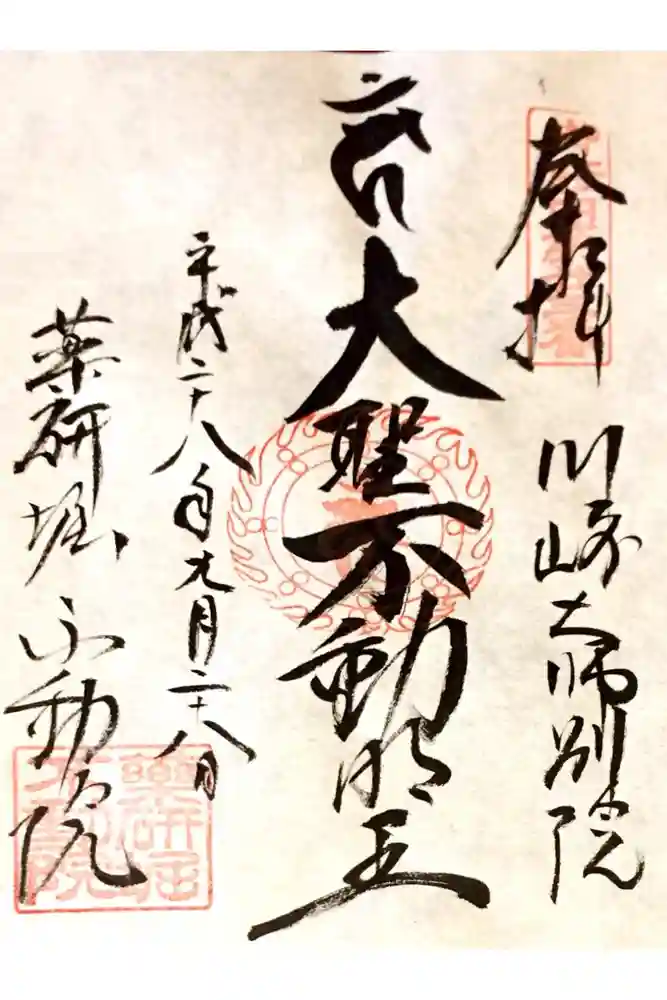 奉拝
川崎大師別院
大聖不動明王
平成二十八年九月二十八日
薬研堀不動院
薬研堀不動院